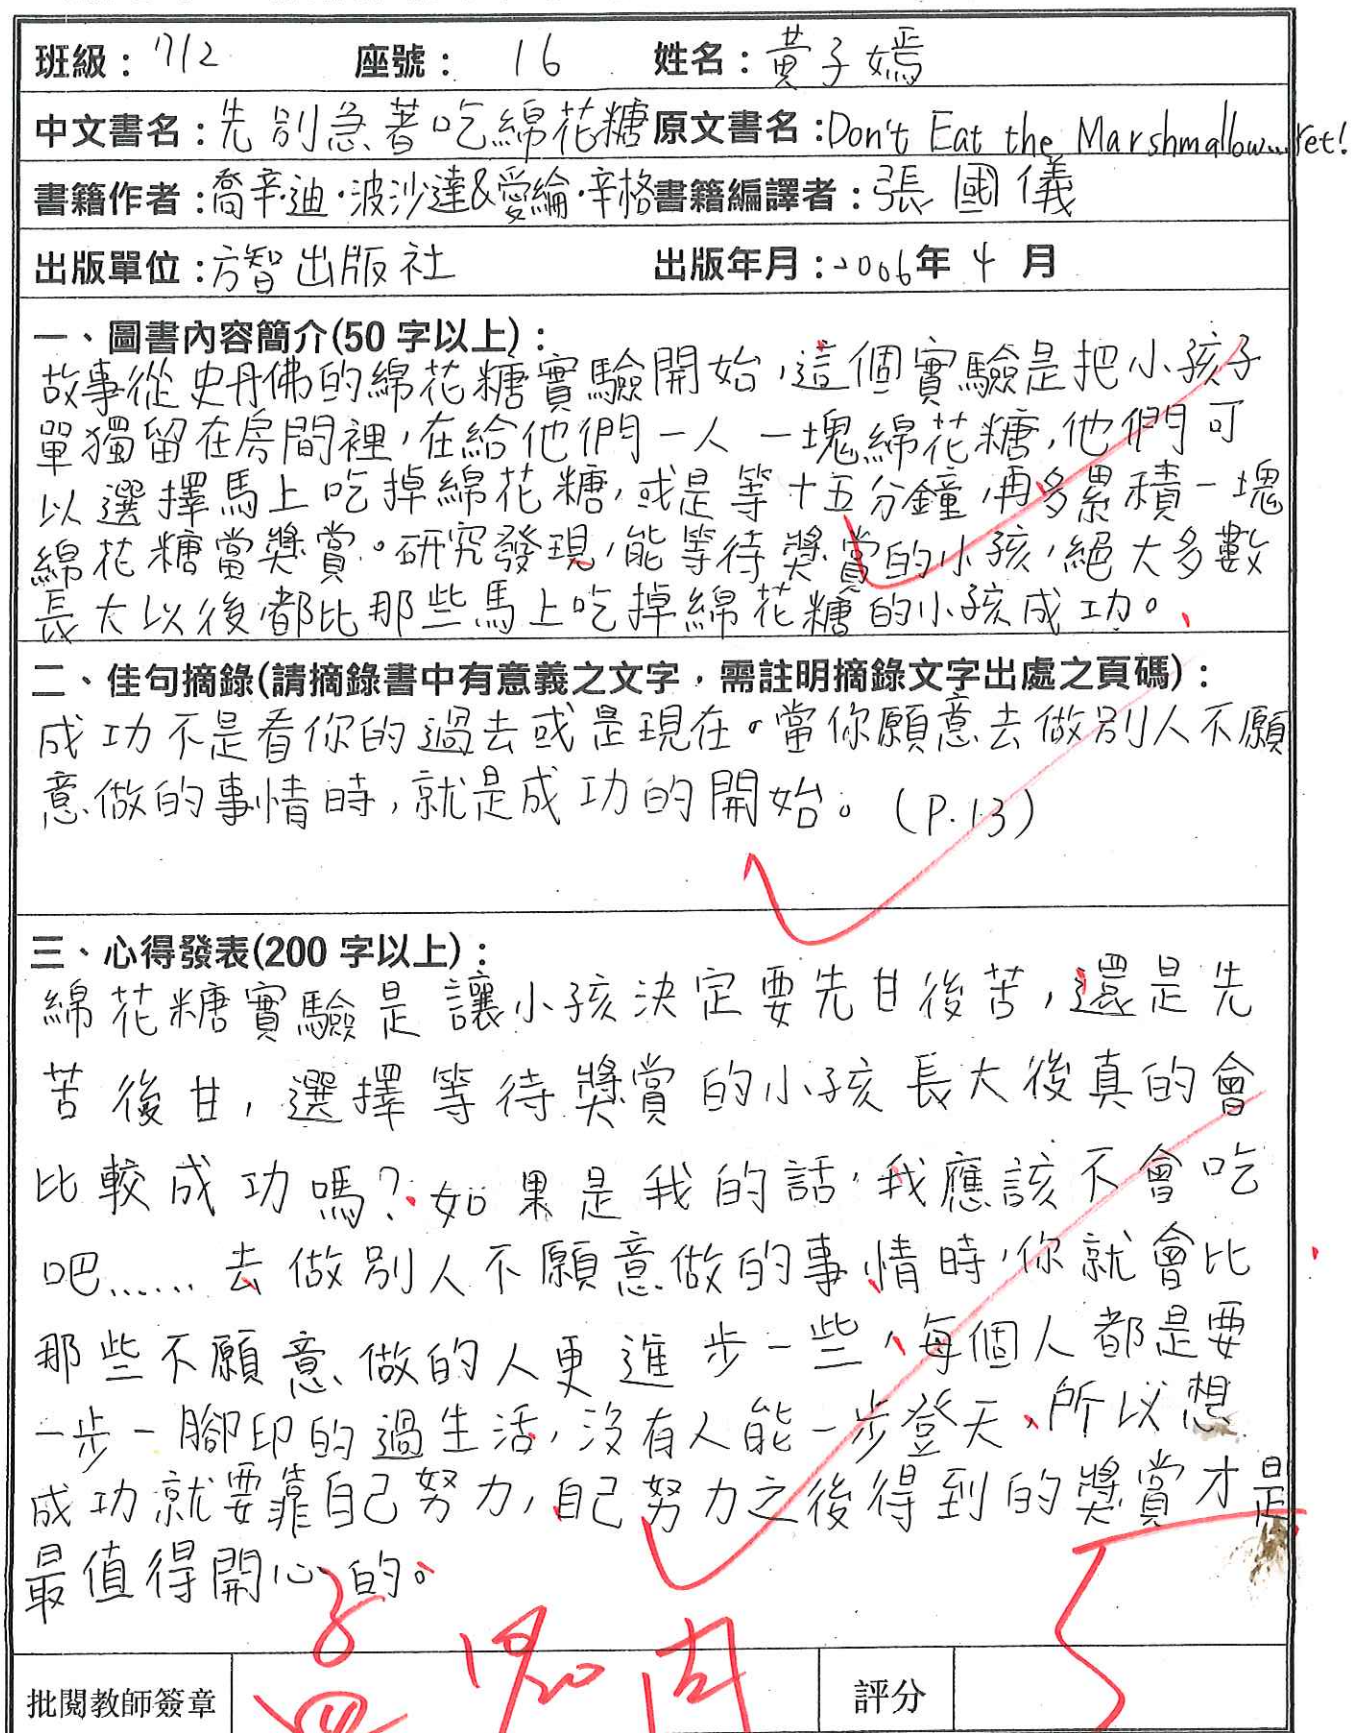 班級：712 座號：16 姓名：黃子嫣
中文書名：先別急著吃綿花糖 原文書名：Don't Eat the Marshmallow...Yet!
書籍作者：喬辛迪·波沙達&愛綸·辛格 書籍編譯者：張國儀
出版單位：方智出版社 出版年月：2006年4月
一、圖書內容簡介(50字以上)：
故事從史丹佛的綿花糖實驗開始，這個實驗是把小孩子
單獨留在房間裡，在給他們一人一塊綿花糖，他們可
以選擇馬上吃掉綿花糖，或是等十五分鐘，再多累積一塊
綿花糖當獎賞。研究發現，能等待獎賞的小孩，絕大多數
長大以後都比那些馬上吃掉綿花糖的小孩成功。
二、佳句摘錄(請摘錄書中有意義之文字，需註明摘錄文字出處之頁碼)：
成功不是看你的過去或是現在。當你願意去做別人不願
意做的事情時，就是成功的開始。(P.13)
三、心得發表(200字以上)：
綿花糖實驗是讓小孩決定要先甘後苦，還是先
苦後甘，選擇等待獎賞的小孩長大後真的會
比較成功嗎？如果是我的話，我應該不會吃
吧……去做別人不願意做的事情時，你就會比
那些不願意做的人更進步一些，每個人都是要
一步一腳印的過生活，沒有人能一步登天、所以想
成功就要靠自己努力，自己努力之後得到的獎賞才是
最值得開心的。
批閱教師簽章 評分